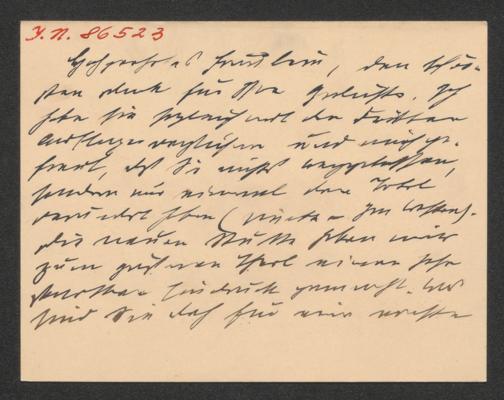 J.N. 86523
Hochverehrtes Fräulein, den schön-
sten Dank für Ihre Gedichte. Ich
habe sie sogleich mit der dritten
Auflage verglichen und mich ge-
freut, daß Sie nichts weggelassen,
sondern nur einmal den Titel
verändert haben
Die neuen Stücke haben mir
zum größeren Theil einen sehr
starken Eindruck gemacht. Was
sind Sie doch für eine